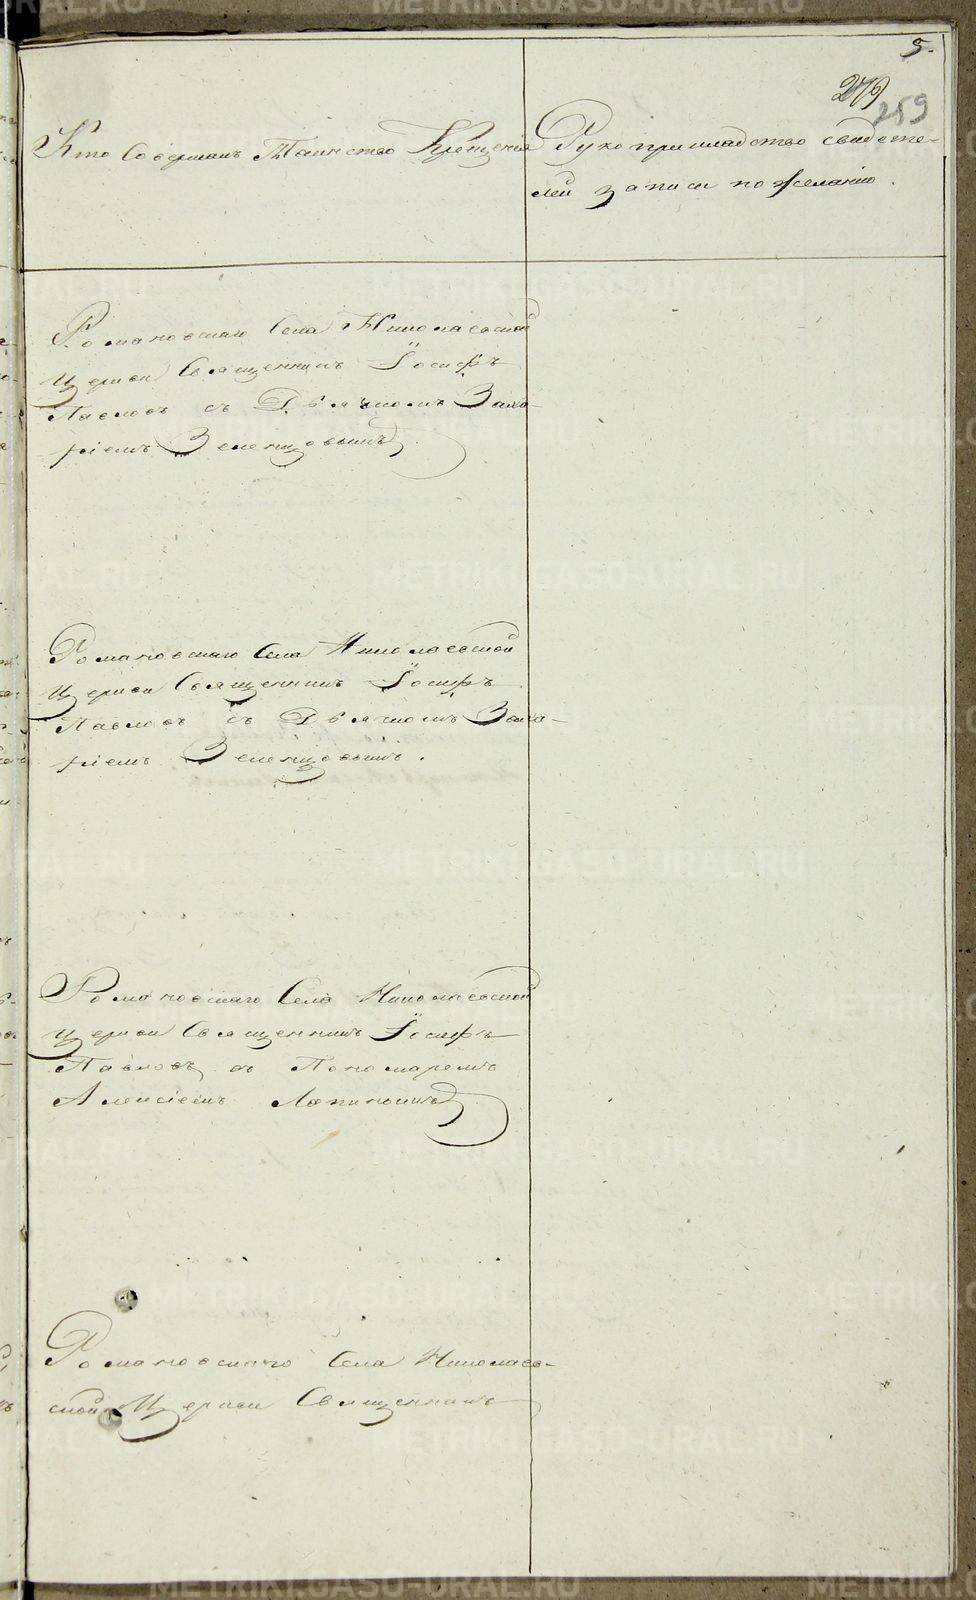 5.
279
259
Кто Совершалъ Таинство Крещенія
Рукоприкладство свидете-
лей записи по желанію.
Романовскаго Села Николаевской
Церкви Священникъ Іосифъ
Павловъ съ Дьячкомъ Заха-
ріемъ Зеленцовымъ
Романовскаго Села Николаевской
Церкви Священникъ Іосифъ
Павловъ съ Дьячкомъ Заха-
ріемъ Зеленцовымъ.
Романовскаго Села Николаевской
Церкви Священникъ Іосифъ
Павловъ съ Пономаремъ
Алексіемъ Лапинымъ
Романовскаго Села Николаев-
ской Церкви Священникъ